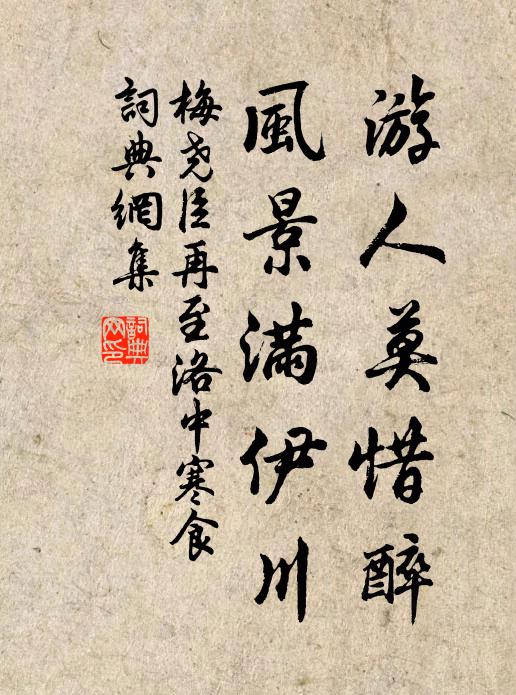 游人莫惜醉
風景滿伊川
梅尧臣再至洛中寒食
詞典網集
詞典网印